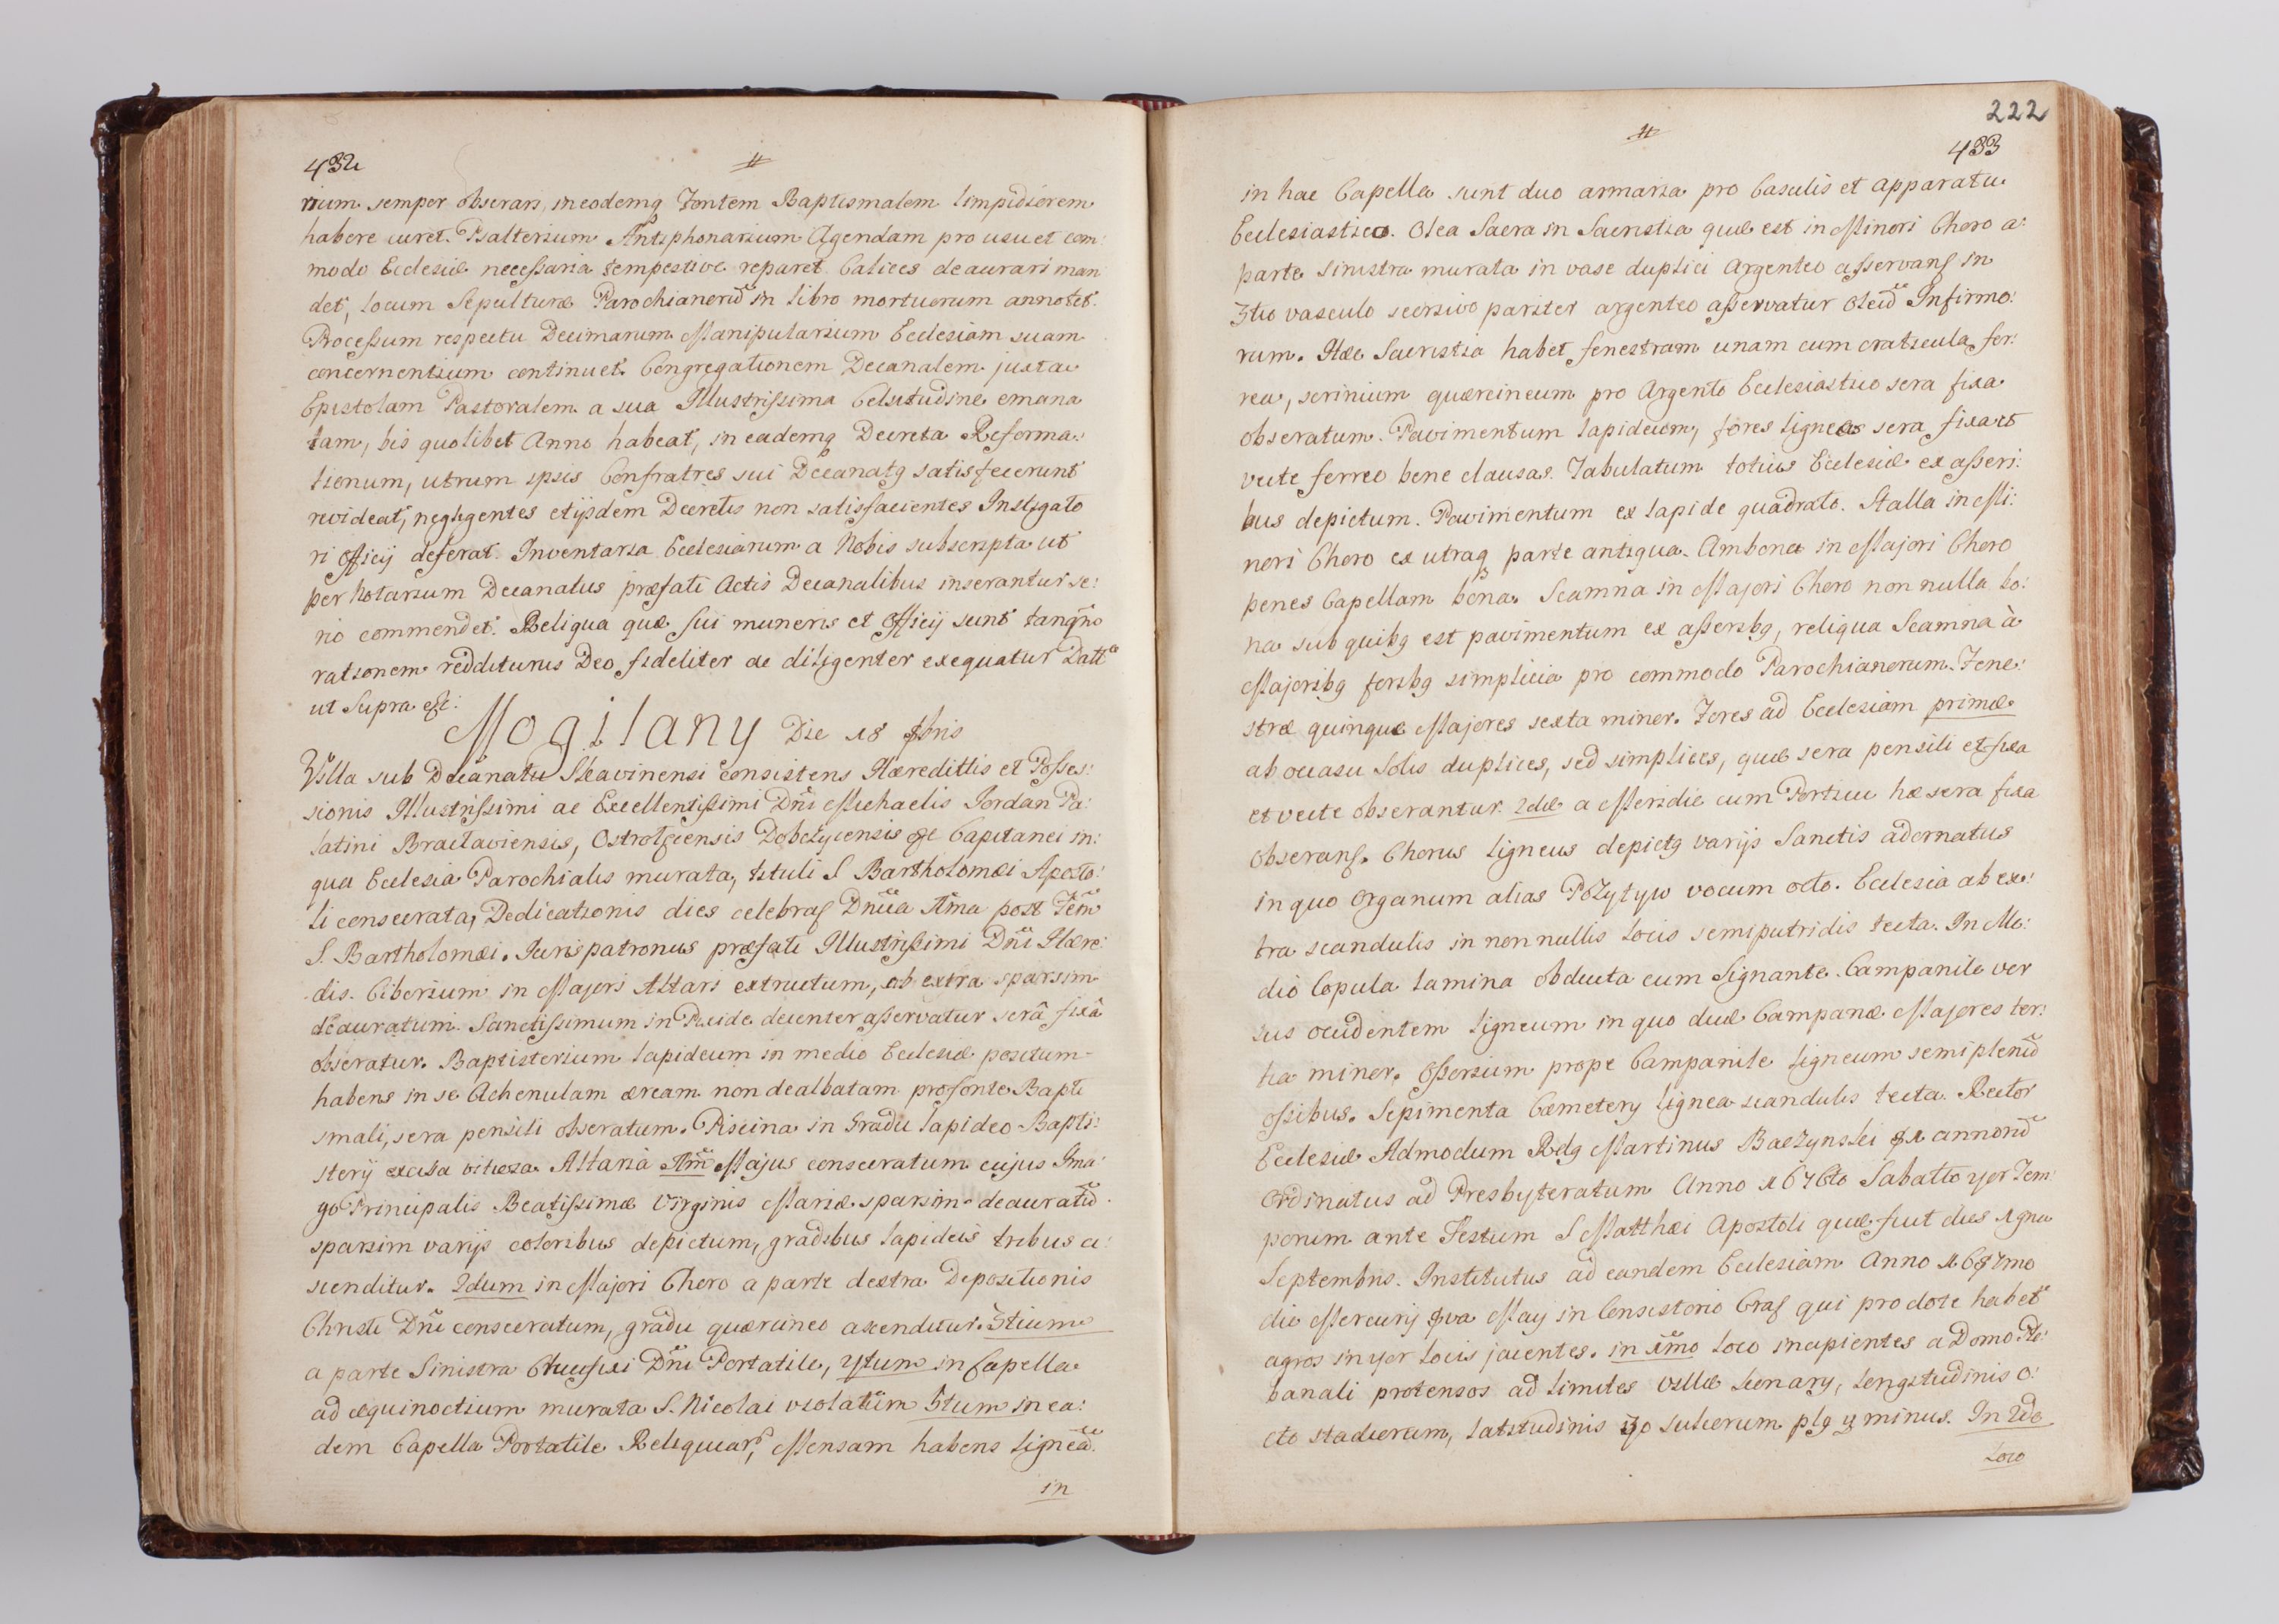 432
#
rium semper obserari, in eodemq Fontem Baptismalem limpidiorem
habere curet. Psalterium Antiphonarium Agendam pro usu et com:
modo Ecclesiæ necessaria tempestive reparet. Calices deaurari man
det, locum Sepulturæ Parochianorũ in libro mortuorum annotet.
Processum respectu Decimarum Manipularium Ecclesiam suam
concernentium continuet. Congregationem Decanalem juxta
Epistolam Pastoralem a sua Illustrissima Celsitudine emana
tam, bis quolibet Anno habeat, in eademq Decreta Reforma:
tionum, utrum ipsis Confratres sui Decanatg satisfecerunt
revideat, negligentes etijsdem Decretis non satisfacientes Instigato
ri Officij deferat. Inventaria Ecclesiarum a Nobis subscripta ut
per Notarium Decanatus præfati Actis Decanalibus inserantur se:
rio commendet. Reliqua quæ sui muneris et Officij sunt tanqño
rationem redditurus Deo fideliter ac diligenter exequatur Datt
ut Supra est:
Mogilany Die 18 8bris
Villa sub Decanatu Skavinensi consistens Hæredittis et Posses:
sionis Illustrissimi ac Excellentissimi Dñi Michaelis Jordan Pa:
latini Braclaviensis, Dobczycensis Capitanei in:
qua Ecclesia Parochialis murata, tituli S Bartholomæi Aposto:
li consecrata, Dedicationis dies celebras Dñica Ima post Fem
S. Bartholomæi. Jurispatronus præfati Illustrissimi Dñi Hære:
dis. Ciborium in Majori Altari extructum, ab extra sparsim
deauratum. Sanctissimum in Pixide decenter asservatur serâ fixâ
obseratur. Baptisterium lapideum in medio Ecclesiæ positum
habens in se Achenulam æream non dealbatam pro fonte Bapti
smali, sera pensili obseratum. Piscina in Gradu lapideo Bapti:
sterij excisa Altaria Imũ Majus consecratum cujus Ima:
go Principalis Beatissimæ Virginis Mariæ sparsim deauratũ
sparsim varijs coloribus depictum, gradibus lapideis tribus a:
scenditur. 2dum in Majori Choro a parte dextra Depositionis
Christi Dñi consecratum, gradu quercineo ascenditur. 3tium
a parte Sinistra Crucifixi Dñi Portatile, 4tum in Capella
ad æquinoctium murata S. Nicolai violatum 5tum in ea:
dem Capella Portatile Reliquiar, Mensam habens ligneã.
in
222
#
433
in hac Capella sunt duo armaria pro Casulis et Apparatu
Ecclesiastico. Olea Sacra in Sacristia quæ est in Minori Choro a:
parte Sinistra murata in vase duplici Argenteo asservans in
3tio vasculo seorsivo pariter argenteo asservatur Oleũ Infirmo:
rum. Hæc Sacristia habet fenestram unam cum craticula fer:
rea, scrinium quercineum pro Argento Ecclesiastico sera fixa
obseratum. Pavimentum lapideum, fores ligneas sera fixa et
vecte ferreo bene clausas. Tabulatum totius Ecclesiæ ex asseri:
bus depictum. Pavimentum ex lapide quadrato. Stalla in Mi:
nori Choro ex utraq parte antiqua. Ambona in Majori Choro
penes Capellam bona. Scamna in Majori Choro non nulla bo:
na sub quibg est pavimentum ex asseribg, reliqua Scamna à
Majoribg foribg simplicia pro commodo Parochianorum. Fene:
stræ quinque Majores sexta minor. Fores ad Ecclesiam primæ
ab occasu Solis duplices, sed simplices, quæ sera pensili et fixa
et vecte obserantur. 2dæ a Meridie cum Porticu hæ sera fixa
obserans. Chorus ligneus depictg varijs Sanctis adornatus
in quo Organum alias Pozytyw vocum octo. Ecclesia ab ex:
tra scandulis in non nullis locis semiputridis tecta. In Me:
dio Copula lamina obducta cum Signante. Campanile ver
sus occidentem ligneum in quo duæ Campanæ Majores ter:
tia minor. Osserium prope Campanile ligneum semiplenũ
ossibus. Sepimenta Cæmetery lignea scandulis tecta. Rector
Ecclesiæ Admodum Rdg Martinus Baczynski annorũ
Ordinatus ad Presbyteratum Anno 1676to Sabatto 4or Tem:
porum ante Festum S Matthæi Apostoli quæ fuit dies
Septembris. Institutus ad eandem Ecclesiam Anno 1687mo
die Mercurij 8va May in Consistorio Cras qui pro dote habet
agros in 4or locis jacentes. in 1mo loco incipientes a Domo Ple:
banali protensos ad limites Villæ Leonary, longitudinis o:
cto stadiorum, latitudinis 30 sulcorum plg minus. In 2do
Loco